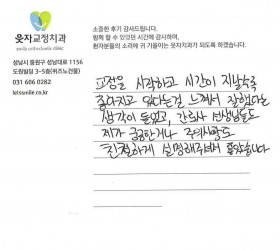 웃자교정치과
smile orthodontic clinic
성남시 중원구 성남대로 1156
도원빌딩 3-5층(퀴즈노건물)
031 606 0282
letssmile.co.kr
소중한 후기 감사드립니다.
함께 할 수 있었던 시간에 감사하며,
환자분들의 소리에 귀 기울이는 웃자치과가 되도록 하겠습니다.
교정을 시작하고 시간이 지날수록
좋아지고 있다는걸 느껴서 잘했다는
생각이 들었고, 간호사 선생님들도
제가 궁금한거나 주의사항도
친절하게 설명해주셔서 좋았습니다